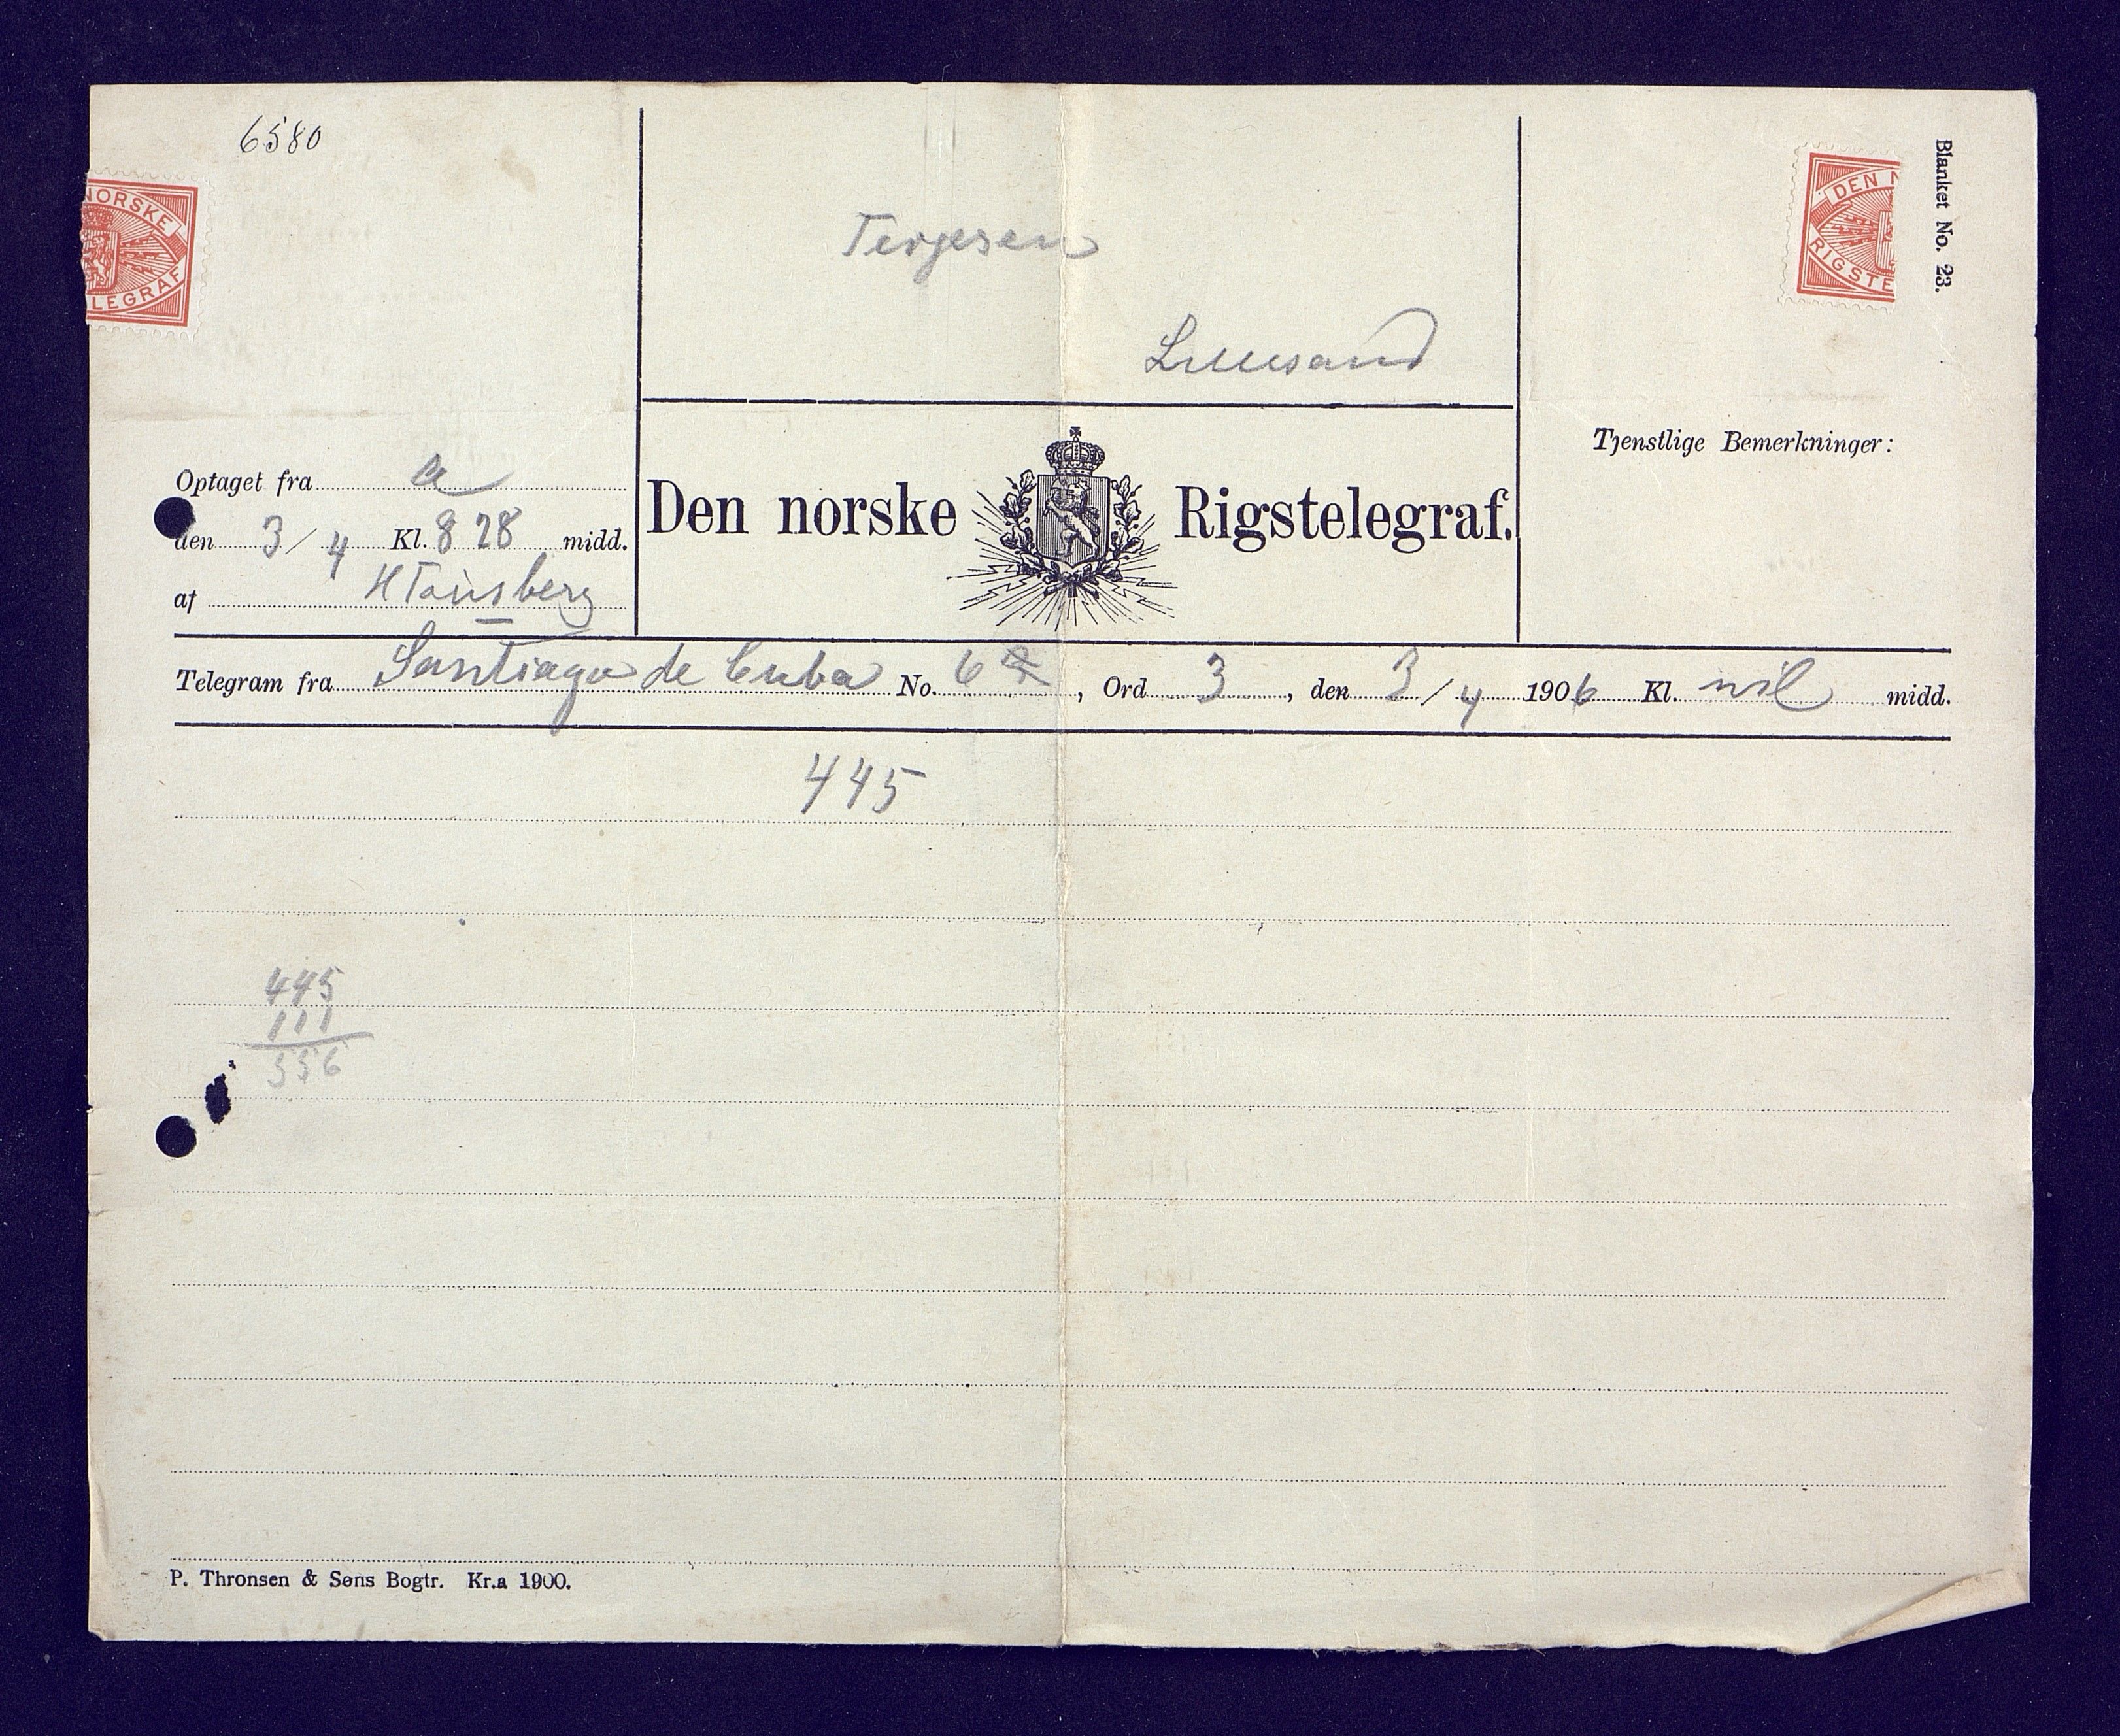 6580
NORSKE
LEGRAF
Terjesen
Lillesand
DEN N
RIGSTE
Blanket No. 23.
Tjenstlige Bemerkninger:
Optaget fra a
den 3/4 Kl. 8 28 midd.
af
Den norske Rigstelegraf.
Telegram fra Santiago de Cuba No. 6, Ord 3, den 3/4 1906 Kl. nil midd.
445
445
111
556
P. Thronsen & Søns Bogtr. Kr.a 1900.